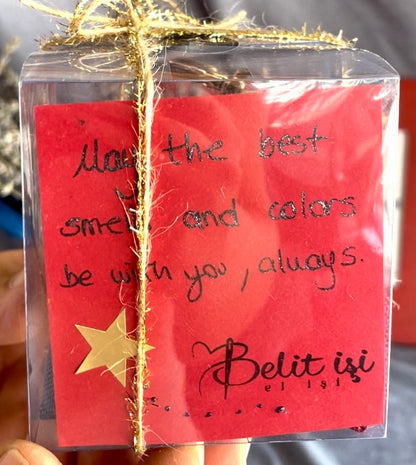 May the best
smell and colors
be with you, always.
Belit işi
el işi